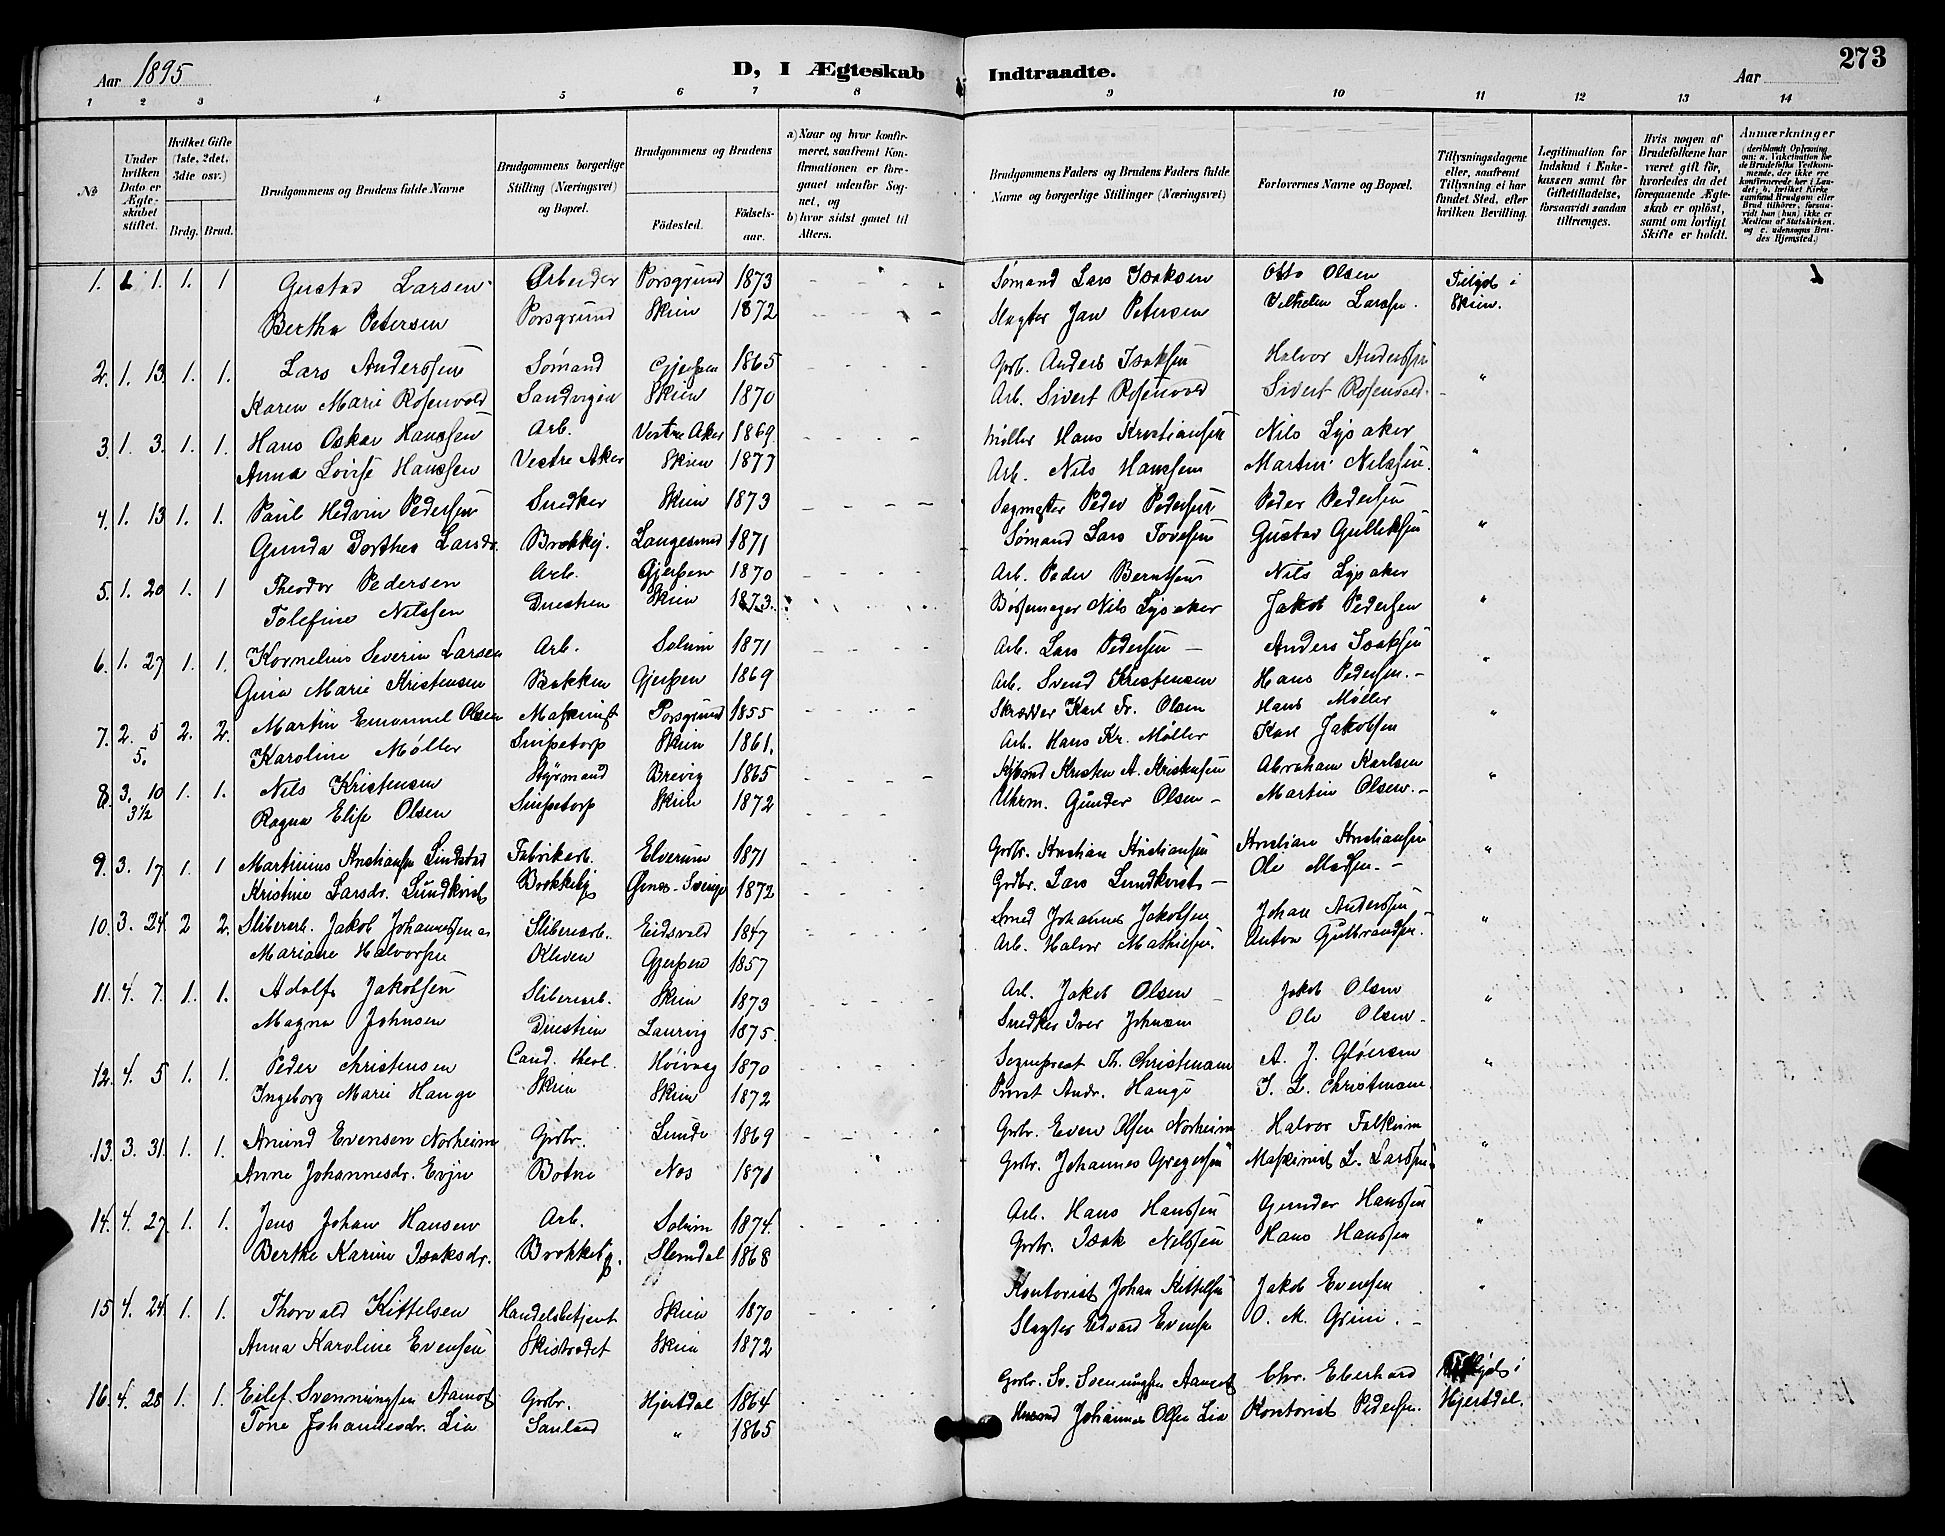 Aar 1895 D, I Ægteskab Indtraadte. Aar 273
1 2 3 4 5 6 7 8 9 10 11 12 13 14
№ Under hvilken Dato er Ægteskabet stiftet. Hvilket Gifte (1ste, 2det, 3die osv.) Brdg. Brud. Brudgommens og Brudens fulde Navne Brudgommens borgerlige Stilling (Næringsvei) og Bopæl. Brudgommens og Brudens Fødested. Fødselsaar. a) Naar og hvor konfirmeret, saafremt Konfirmationen er foregaaet udenfor Sognet, og b) hvor sidst gaaet til Alters. Brudgommens Faders og Brudens Faders fulde Navne og borgerlige Stillinger (Næringsvei) Forlovernes Navne og Bopæl. Tillysningsdagene eller, saafremt Tillysning ei har fundet Sted, efter hvilken Bevilling. Legitimation for Indskud i Enkekassen samt for Giftetilladelse, forsaavidt saadan tiltrænges. Hvis nogen af Brudefolkene har været gift før, hvorledes da det foregaaende Ægteskab er opløst, samt om lovligt Skifte er holdt. Anmærkninger (deriblandt Oplysning om: a. Vakcination for de Brudefolks Vedkommende, der ikke ere konfirmerede her i Landet; b. hvilket Kirkesamfund Brudgom eller Brud tilhører, forsaavidt han (hun) ikke er Medlem af Statskirken, og c. udensogns Brudes Hjemsted.)
1. 1. 1. 1 Gustav Larsen Arbeider Porsgrund 1873 Sømand Lars Isaksen Otto Olsen Tillyst i
Bertha Petersen Porsgrund Skien 1872 Slagter Jan Petersen Vilhelm Larssen. Skien.
2. 1. 13. 1. 1. Lars Anderssen Sømand Gjerpen 1865 Grb. Anders Isaksen Halvor Anderssen "
Karen Marie Rosenvold Sandvigen Skien 1870 Arb. Sivert Rosenvold Sivert Rosenvold.
3. 1. 3. 1. 1. Hans Oskar Hanssen Arb. Vestre Aker 1869 Møller Hans Kristiansen Nils Lysaker "
Anna Lovise Hanssen Vestre Aker Skien 1877 Arb. Nils Hanssen Martin Nilssen.
4. 1. 13 1. 1. Paul Hedvin Pedersen Snedker Skien 1873 Sagmester Peder Pedersen Peder Pedersen "
Gunda Dorthea Larsdr. Brekkej. Langesund 1871 Sømand Lars Tovesen Gustav Gulliksen
5. 1. 20 1. 1 Theodor Pedersen Arb. Gjerpen 1870 Arb. Peder Berntsen Nils Lysaker "
Tolefine Nilssen Duestien Skien 1873. Bøssemager Nils Lysaker Jakob Pedersen
6. 1. 27 1. 1. Kornelius Severin Larsen Arb. Solum 1871 Arb. Lars Pedersen Anders Isaksen "
Gina Marie Kristensen Bakken Gjerpen 1869 Arb. Svend Kristensen Hans Pedersen.
7. 2. 5 2. 2. Martin Emanuel Olsen Maskinist Porsgrund 1855 Skrædder Karl Fr. Olsen Hans Møller "
5. Karoline Møller Snipetorp Skien 1861. Arb. Hans Kr. Møller Karl Jakobsen
8 3. 10 1. 1. Nils Kristensen Styrmand Brevig 1865 Kristen A. Kristensen Abraham Karlsen "
3½ Ragna Elise Olsen Snipetorp Skien 1872 Uhrm. Gunder Olsen Martin Olsen.
9. 3. 17 1. 1 Martinius Kristiansen Lindstad Fabrikarb. Elverum 1871 Grdbr. Kristian Kristiansen Kristian Kristiansen "
Kristine Larsdr. Lundkvist Brekkeby Sverige 1872 Grdbr. Lars Lundkvist Ole Madsen.
10. 3. 24 2 2. Sliberarb. Jakob Johannessen Sliberiarb. Eidsvold 1847 Smed Johannes Jakobsen Johan Anderssen "
Mariane Halvorsen Kleven Gjerpen 1857 Arb. Halvor Mathisen. Anton Gulbrandsen.
11. 4. 7. 1. 1. Adolf Jakobsen Sliberiarb. Skien 1873 Arb. Jakob Olsen Jakob Olsen "
Magna Johnsen Duestien Laurvig 1875. Snedker Iver Johnsen Ole Olsen.
12. 4. 5 1. 1. Peder Christensen Cand. theol. Høivaag 1870 Sogneprest Th. Christensen A. J. Gløersen "
Ingeborg Marie Hauge Skien Skien 1872 Provst Andr. Hauge S. L. Christensen.
13. 3. 31. 1. 1. Amund Evensen Norheim Grdbr. Lunde 1869 Grbr. Even Olsen Norheim Halvor Falkum "
Anne Johannesdr. Evju Botne Nes 1871 Grbr. Johannes Gregersen Maskinist L. Larssen
14. 4. 27 1. 1. Jens Johan Hansen Arb. Solum 1874. Arb. Hans Hanssen Gunder Hanssen "
Berthe Karine Isaksdr. Brekkeby. Slemdal 1868 Grbr. Isak Nilssen Hans Hanssen
15 4. 24 1. 1. Thorvald Kittelsen Handelsbetjent Skien 1870 Kontorist Johan Kittelsen Jakob Evensen "
Anna Karoline Evensen Skistrædet Skien 1872 Slagter Edvard Evensen O. M. Grini.
16. 4. 28 1. 1. Eilef Svenningsen Aamot Grbr. Hjertdal 1864 Grbr. Sv. Svenningsen Aamot Chr. Eberhard Tillyst i
Tone Johannesdr. Lia Sauland " 1865 Husmd Johannes Olsen Lia Kontorist Pedersen. Hjertdal.